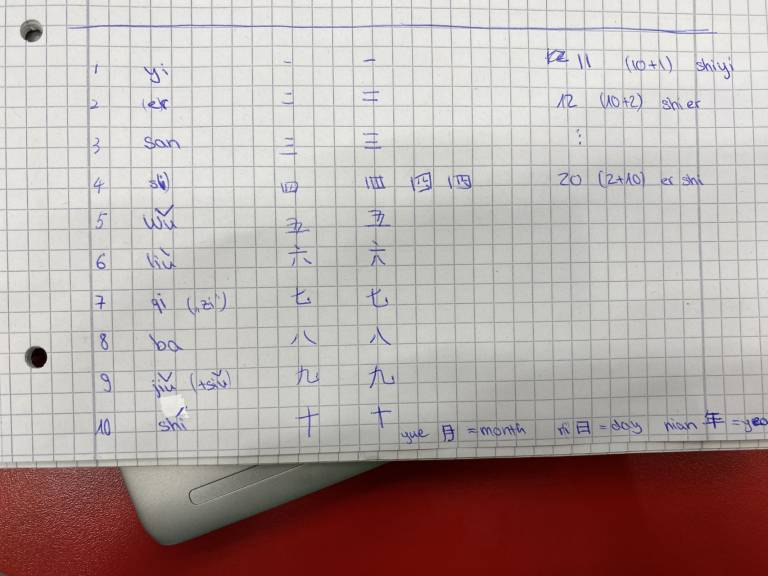 1 yi 一 一 11 (10+1) shiyi
2 er 二 二 12 (10+2) shi er
3 san 三 三 ⋮
4 四 四 四 四 20 (2+10) er shi
5 wǔ 五 五
6 liù 六 六
7 qi („zi") 七 七
8 ba 八 八
9 jiǔ (tsiǔ) 九 九
10 shí 十 十
yue 月 =month ri 日 =day nian 年 =yea